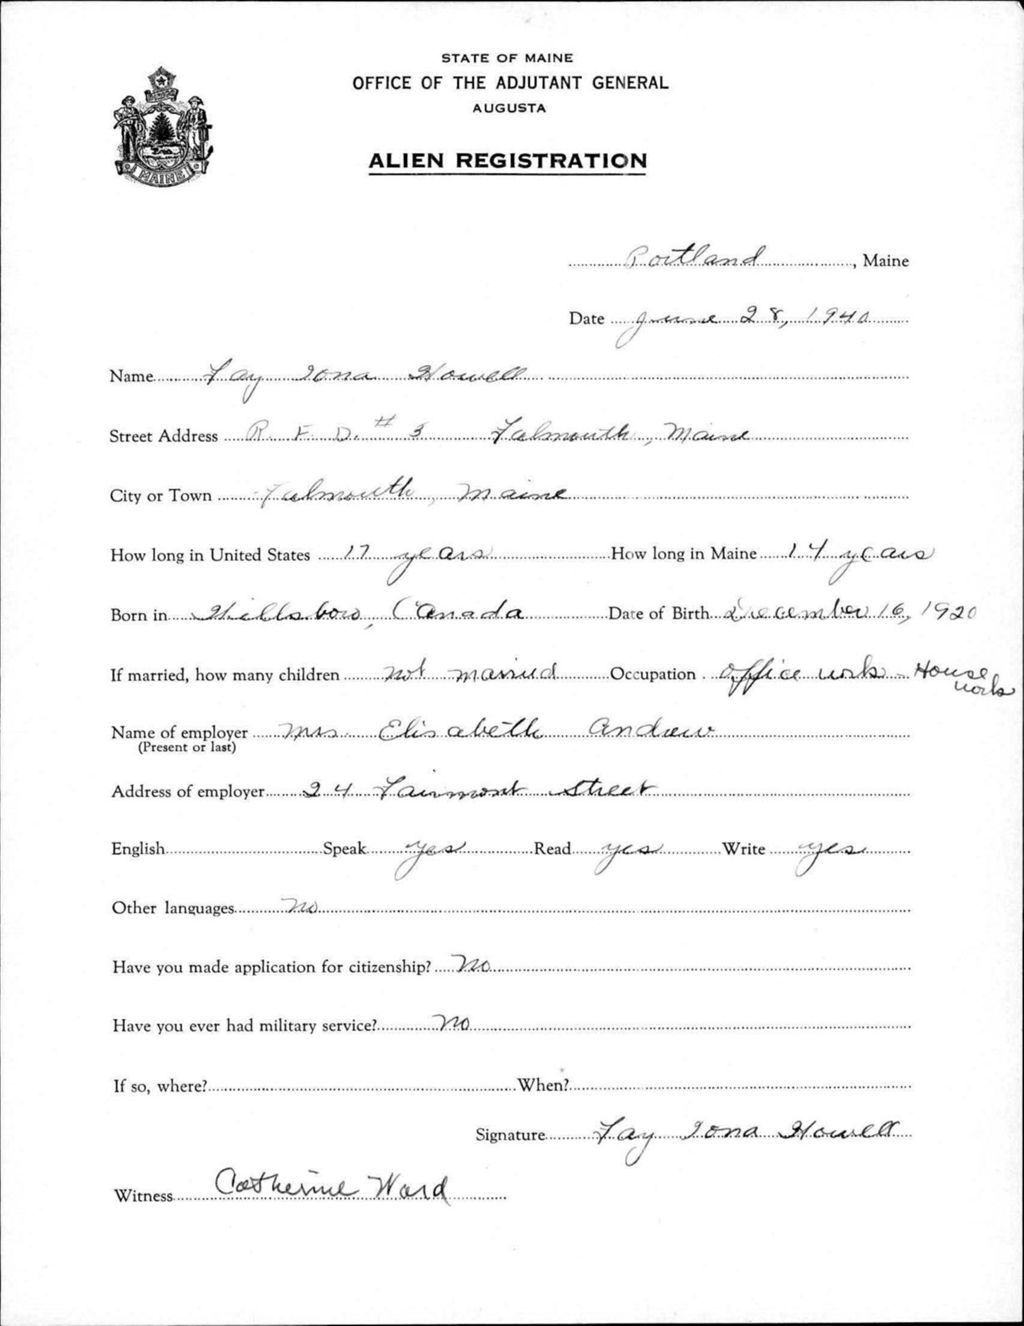 STATE OF MAINE
OFFICE OF THE ADJUTANT GENERAL
AUGUSTA
ALIEN REGISTRATION
MAINE
Portland, Maine
Date June 28, 1940
Name Fay Iona Howell
Street Address R. F. D. # 3 Falmouth, Maine
City or Town Falmouth, Maine
How long in United States 17 years How long in Maine 14 years
Born in Hillsboro, Canada Date of Birth December 16, 1920
If married, how many children not married Occupation office work - House work
Name of employer Mrs Elisabeth Andrew
(Present or last)
Address of employer 24 Fairmont Street
English Speak yes Read yes Write yes
Other languages No
Have you made application for citizenship? No
Have you ever had military service? no
If so, where? When?
Signature Fay Iona Howell
Witness Catherine Ward